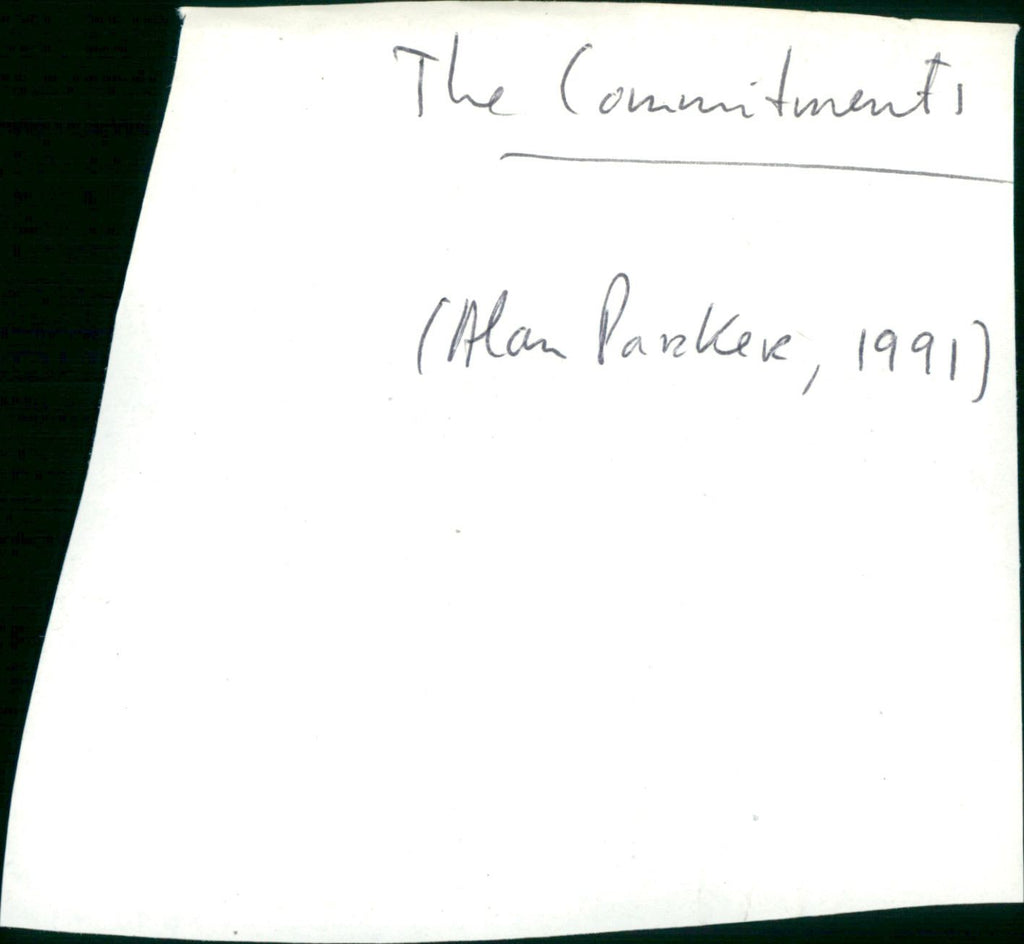 The Commitments
(Alan Parker, 1991)